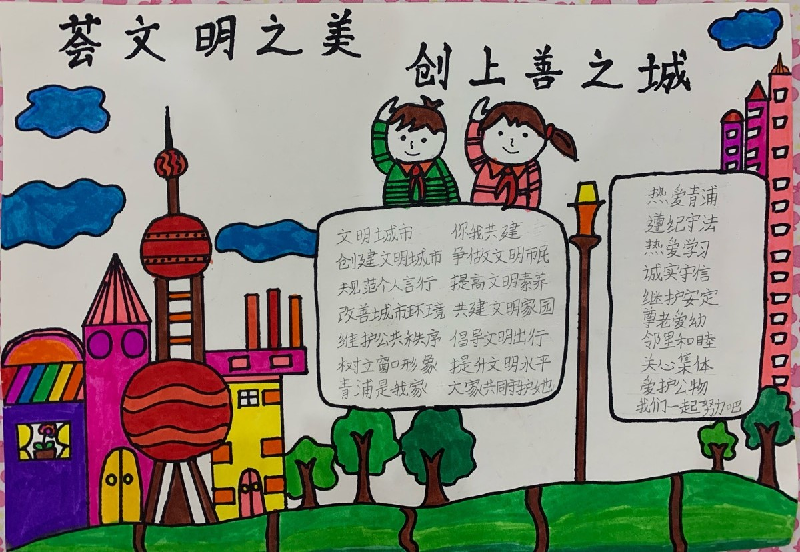 荟文明之美
创上善之城
文明城市 你我共建
创建文明城市 争做文明市民
规范个人言行 提高文明素养
改善城市环境 共建文明家园
维护公共秩序 倡导文明出行
树立窗口形象 提升文明水平
青浦是我家 大家共同守护她
热爱青浦
遵纪守法
热爱学习
诚实守信
维护安定
尊老爱幼
邻里和睦
关心集体
爱护公物
我们一起努力吧